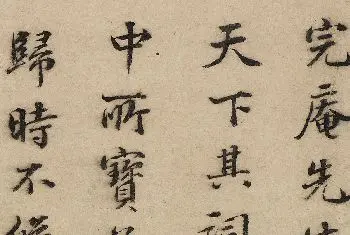 完庵先
天下其詞
中所寶
歸時不